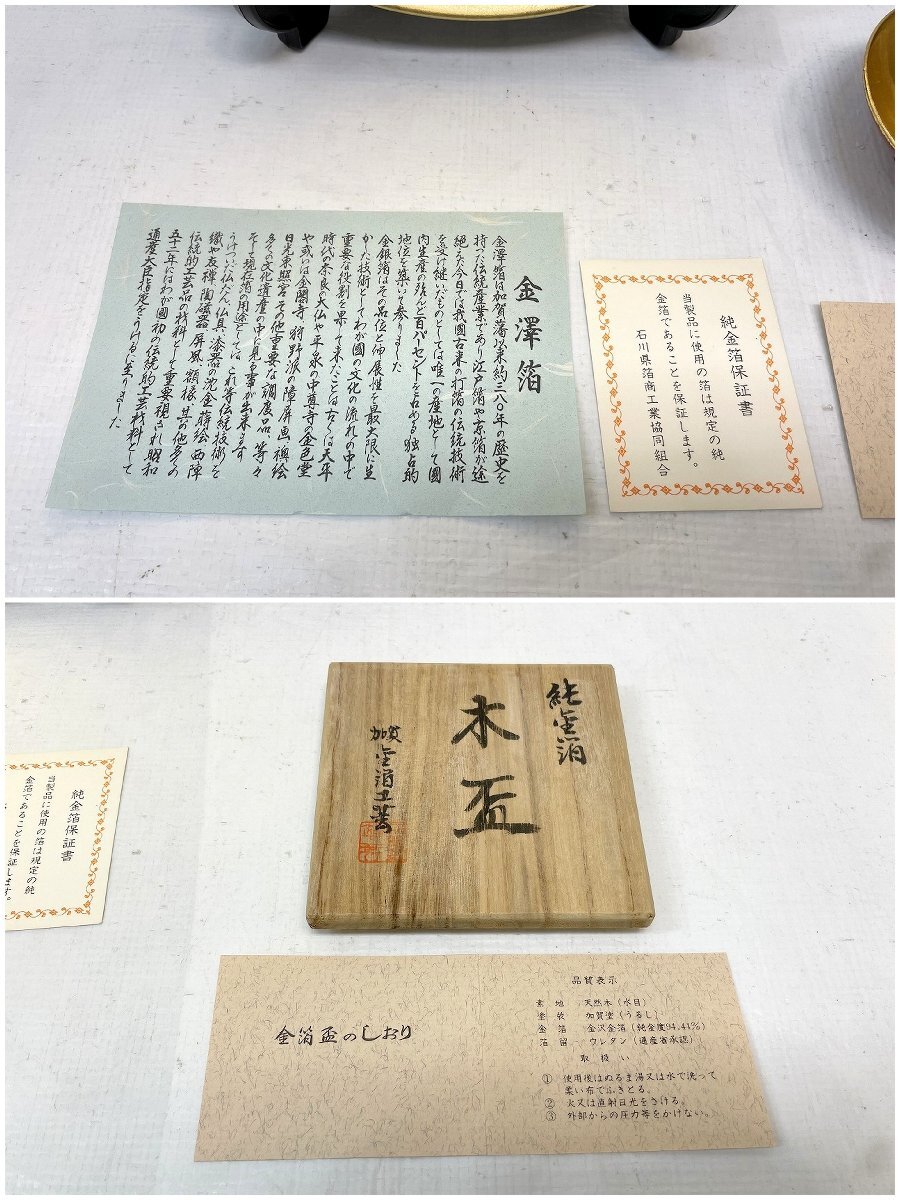 金澤箔
金澤箔は加賀藩以来約三八〇年の歴史を
持つ伝統産業であり江戸箔や京箔が途
絶えた今日では我國古来の打箔の伝統技術
を受け継いだものとしては唯一の産地として國
内生産の殆んど百パーセントを占める独占的
地位を築いて参りました
金銀箔はその品位と伸展性を最大限に生
かした技術としてわが國の文化の流れの中で
重要な役割を果して来たことは古くは天平
時代の奈良の大仏や平泉の中尊寺の金色堂
や或いは金閣寺 狩野派の障屏画、襖絵
日光東照宮その他重要な調度品、等々
多くの文化遺産の中に見る事が出来ます
そして現在箔の用途としては これ等伝統技術を
うけついだ仏だん、仏具、漆器の沈金蒔絵 西陣
織や友禅 陶磁器 屏風、額様 其の他多くの
伝統的工芸品の材料として重要視され、昭和
五十二年にはわが國初の伝統的工芸材料として
通産大臣指定をうけるに至りました
純金箔保証書
当製品に使用の箔は規定の純
金箔であることを保証します。
石川県箔商工業協同組合
純金箔保証書
当製品に使用の箔は規定の純
金箔であることを保証します。
純金箔
木盃
加賀金箔工芸
金箔盃のしおり
品質表示
素地 : 天然木(水目)
塗装 : 加賀塗(うるし)
金箔 : 金沢金箔(純金度94.41%)
箔留 : ウレタン(通産省承認)
取扱い
① 使用後はぬるま湯又は水で洗って
柔い布でふきとる。
② 火又は直射日光をさける。
③ 外部からの圧力等をかけない。